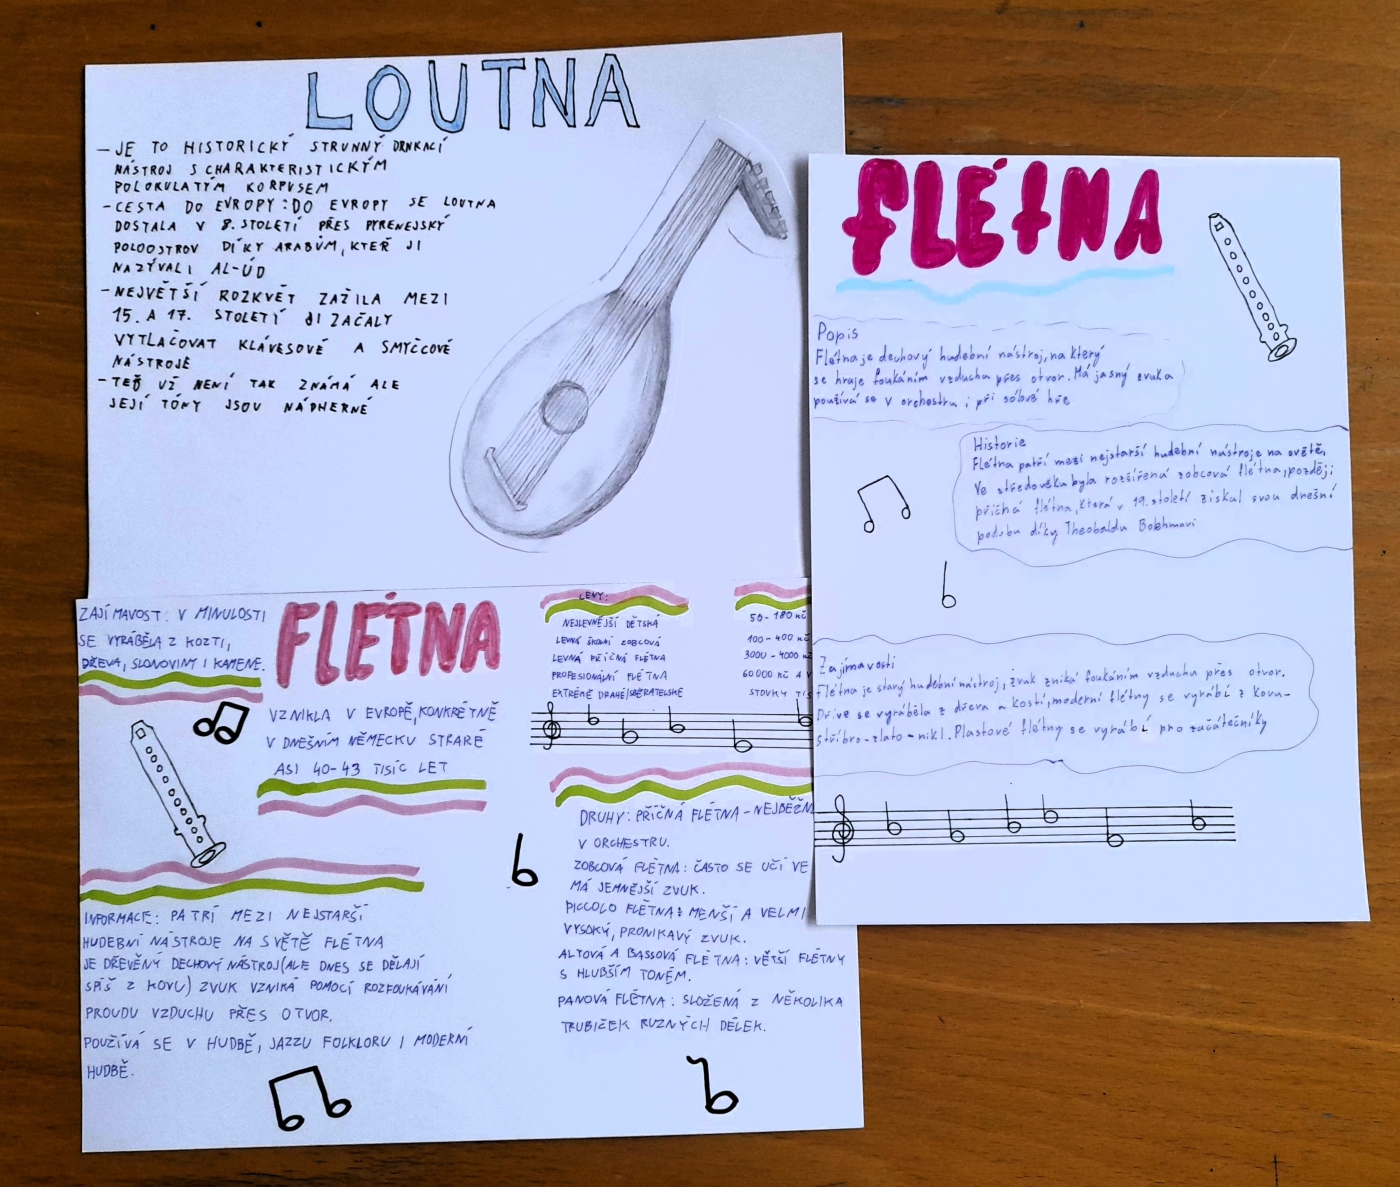 LOUTNA
– JE TO HISTORICKÝ STRUNNÝ DRNKACÍ
NÁSTROJ S CHARAKTERISTICKÝM
POLOKULATÝM KORPUSEM
– CESTA DO EVROPY : DO EVROPY SE LOUTNA
DOSTALA V 8. STOLETÍ PŘES PYRENEJSKÝ
POLOOSTROV DÍKY ARABŮM, KTEŘ JI
NAZÝVALI AL-ÚD
– NEJVĚTŠÍ ROZKVĚT ZAŽILA MEZI
15. A 17. STOLETÍ JI ZAČALY
VYTLAČOVAT KLÁVESOVÉ A SMYČCOVÉ
NÁSTROJE
– TEĎ UŽ NENÍ TAK ZNÁMÁ ALE
JEJÍ TÓNY JSOU NÁDHERNÉ
FLÉTNA
Popis
Flétna je dechový hudební nástroj, na který
se hraje foukáním vzduchu přes otvor. Má jasný zvuk a
používá se v orchestru i při sólové hře
Historie
Flétna patří mezi nejstarší hudební nástroje na světě.
Ve středověku byla rozšířená zobcová flétna, později
příčná flétna, která v 19. století získal svou dnešní
podobu díky Theobaldu Boehmovi
Zajímavosti
Flétna je starý hudební nástroj, zvuk zniká foukáním vzduchu přes otvor.
Dříve se vyráběla z dřeva a kostí, moderní flétny se vyrábí z kovu-
stříbro-zlato-nikl. Plastové flétny se vyrábí pro začátečníky
ZAJÍMAVOST: V MINULOSTI
SE VYRÁBĚLA Z KOZTI,
DŘEVA, SLONOVINY I KAMENE.
FLÉTNA
VZNIKLA V EVROPĚ, KONKRÉTNĚ
V DNEŠNÍM NĚMECKU STRARÉ
ASI 40-43 TISÍC LET
INFORMACE: PATRÍ MEZI NEJSTARŠÍ
HUDEBNÍ NÁSTROJE NA SVĚTĚ FLÉTNA
JE DŘEVĚNÝ DECHOVÝ NÁSTROJ (ALE DNES SE DĚLAJÍ
SPÍŠ Z KOVU) ZVUK VZNIKÁ POMOCÍ ROZFOUKÁVÁNÍ
PROUDU VZDUCHU PŘES OTVOR.
POUŽÍVÁ SE V HUDBĚ, JAZZU FOLKLORU I MODERNÍ
HUDBĚ.
CENY:
NEJLEVNĚJŠÍ DĚTSKÁ 50-180 Kč
LEVNÁ ŠKOLNÍ ZOBCOVÁ 100-400 Kč
LEVNÁ PŘÍČNÁ FLÉTNA 3000-4000 Kč
PROFESIONÁLNÍ FLÉTNA 60 000 Kč A V
EXTRÉMĚ DRAHÉ/SBĚRATELSKÉ STOVKY TIS
DRUHY: PŘÍČNÁ FLÉTNA - NEJBĚŽN
V ORCHESTRU.
ZOBCOVÁ FLÉTNA: ČASTO SE UČÍ VE
MÁ JEMNĚJŠÍ ZVUK.
PICCOLO FLÉTNA: MENŠÍ A VELMI
VYSOKÝ, PRONIKAVÝ ZVUK.
ALTOVÁ A BASSOVÁ FLÉTNA: VĚTŠÍ FLÉTNY
S HLUBŠÍM TONÉM.
PANOVÁ FLÉTNA: SLOŽENÁ Z NĚKOLIKA
TRUBIČEK RUZNÝCH DÉLEK.